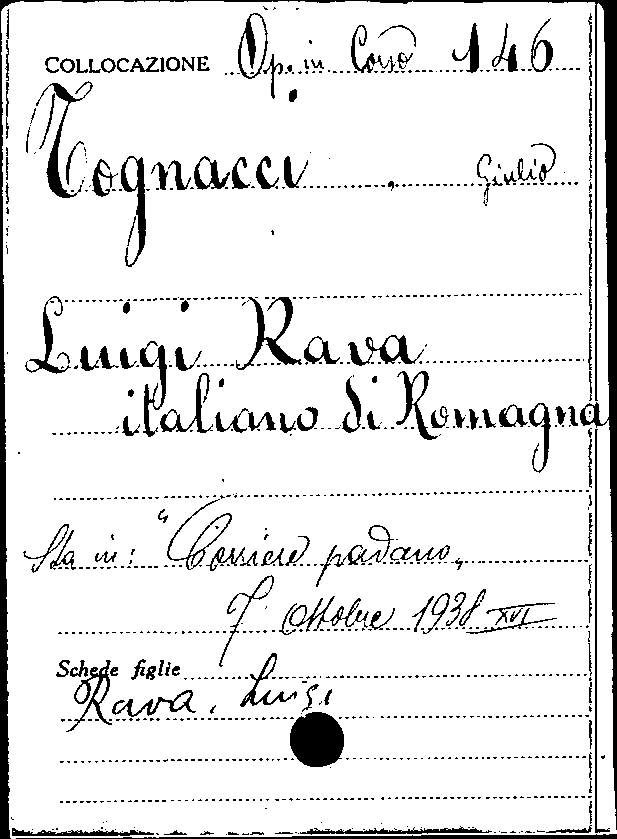 COLLOCAZIONE Op. in Corso 146
Tognacci, Giulio
Luigi Rava
italiano di Romagna
Sta in: "Corriere padano„
7 Ottobre 1938 XVI
Schede figlie
Rava, Luigi